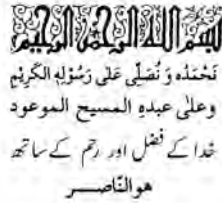 بسم الله الرحمن الرحيم
نَحْمَدُهٗ وَ نُصَلِّی عَلٰی رَسُوْلِهِ الْكَرِیْمِ
وعلٰی عبدهِ المسيح الموعود
خدا کے فضل اور رحم کے ساتھ
هو النّاصـــر